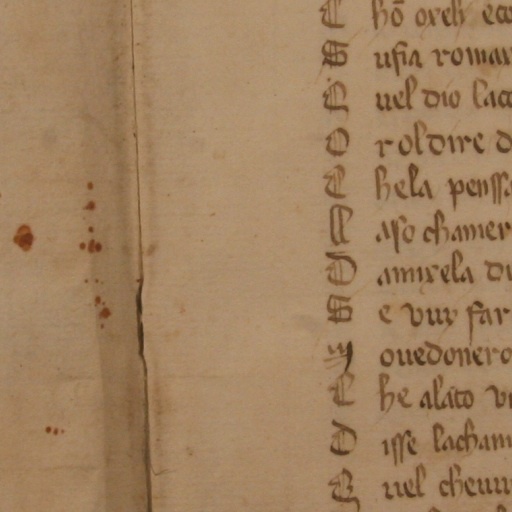 C hõ oreh eco
S ufia romar
Q uel dio lacc
O rol dire d
C hela penssa
A aso chamer
D amixela di
S e vuy far
M ouedonero
C he alato vi
D isse lacham
Q uel cheuu